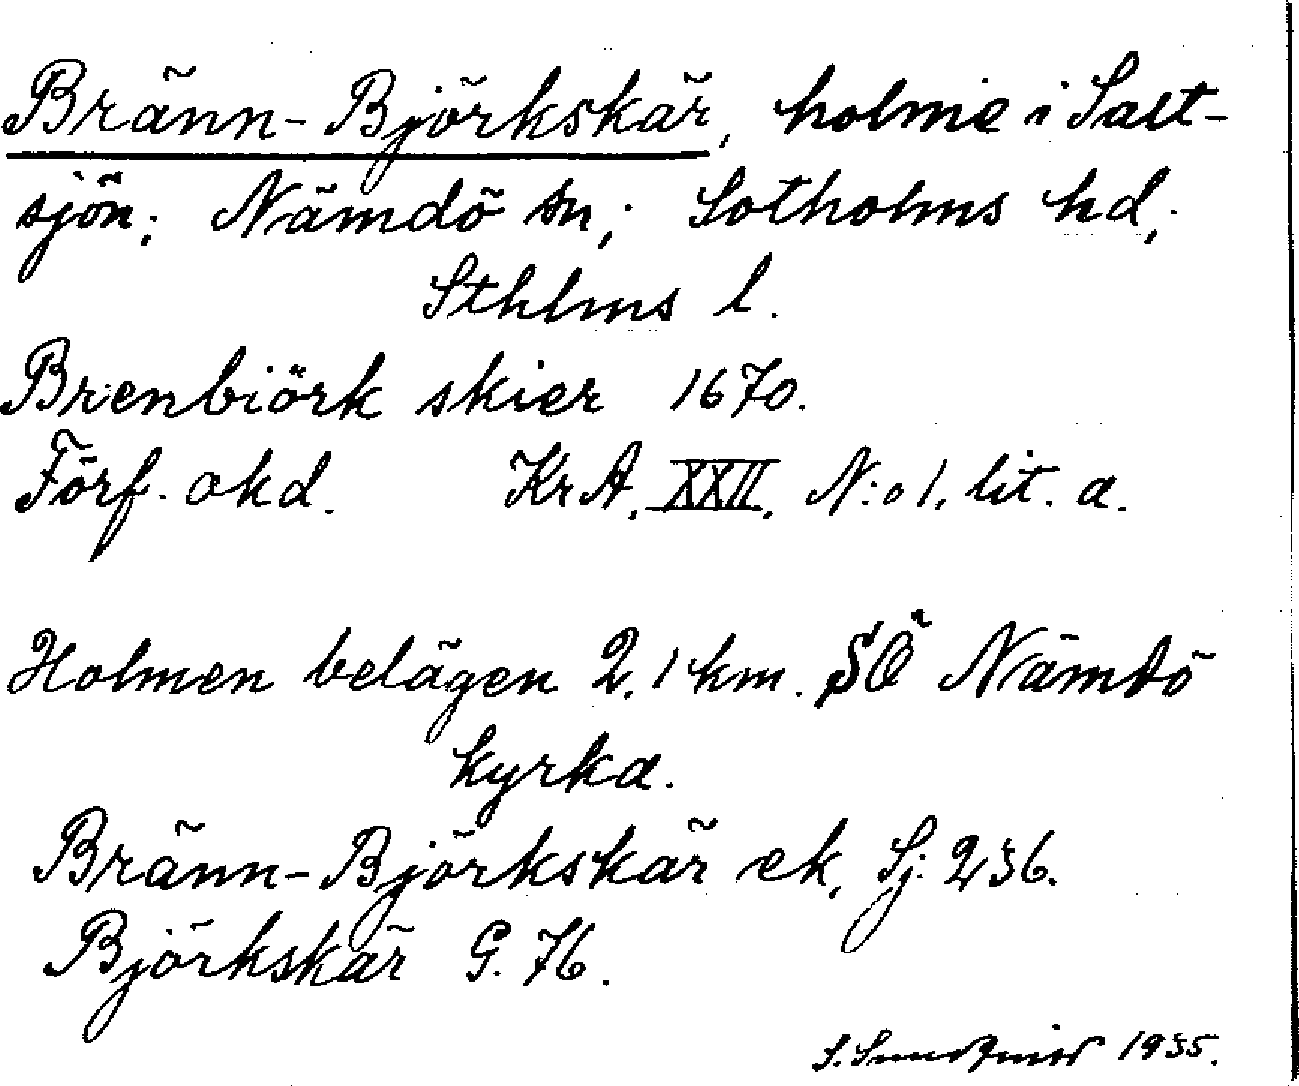 Bränn-Björkskär, holme i Salt-
sjön; Nämdö sn; Sotholms hd;
Sthlms l.
Brenbiörk skier 1670.
Förf. okd. KrA. XXII. N:o 1. lit. a.
Holmen belägen 2,1 km. SÖ Nämdö
kyrka.
Bränn-Björkskär ek, Sj: 236.
Björkskär G. 76.
S. 1935.